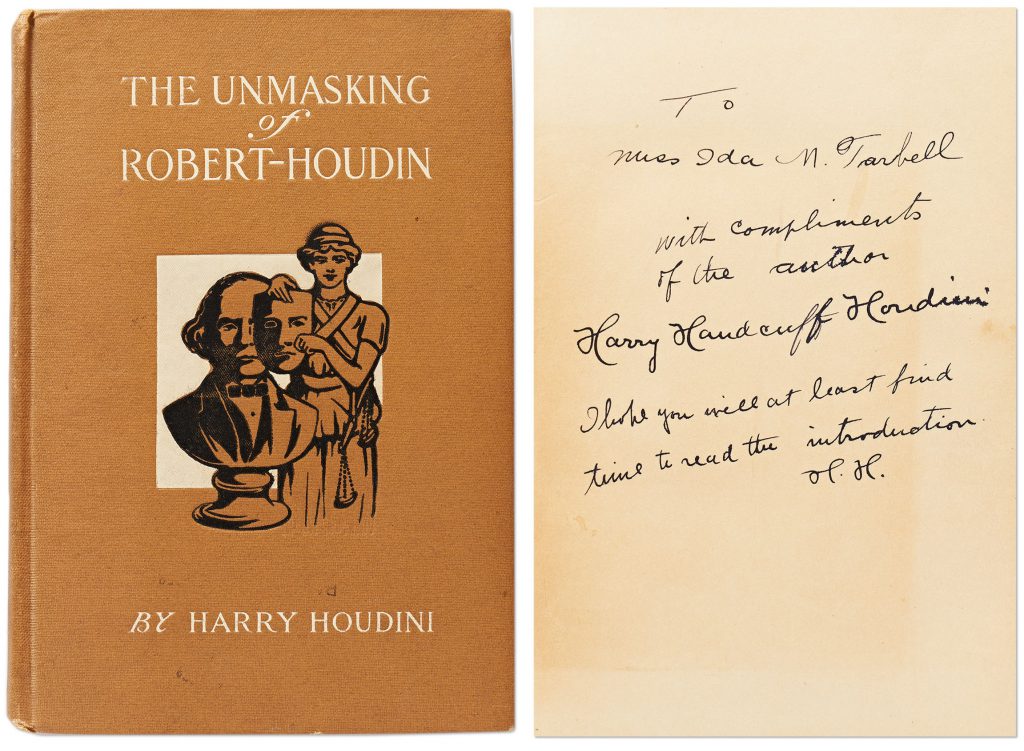 THE UNMASKING
of
ROBERT-HOUDIN
BY HARRY HOUDINI
To
Miss Ida M. Tarbell
with compliments
of the author
Harry Handcuff Houdini
I hope you will at least find
time to read the introduction.
H. H.